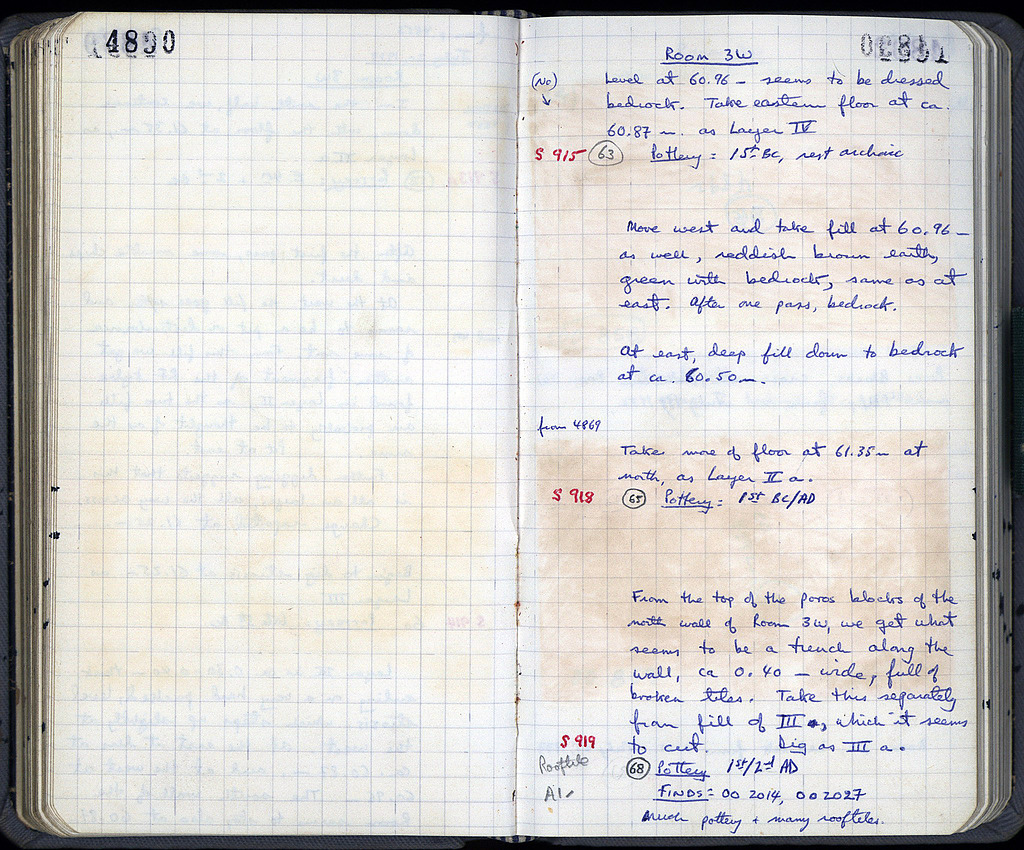 4890
Room 3W
(No)
Level at 60.96 – seems to be dressed
bedrock. Take eastern floor at ca.
60.87 m. as Layer IV
S 915 63 Pottery = 1st BC, rest archaic
Move west and take fill at 60.96 –
as well, reddish brown earth,
green with bedrock, same as at
east. After one pass, bedrock.
At east, deep fill down to bedrock
at ca. 60.50 m.
from 4869
Take more of floor at 61.35 m at
north, as Layer II a.
S 918 65 Pottery: 1st BC/AD
From the top of the poros blocks of the
north wall of Room 3W, we get what
seems to be a trench along the
wall, ca 0.40 – wide, full of
broken tiles. Take this separately
from fill of III, which it seems
S 919 to cut. Dig as III a.
Rooftile 68 Pottery 1st/2nd AD
FINDS: OO 2014, OO 2027
Much pottery + many rooftiles.